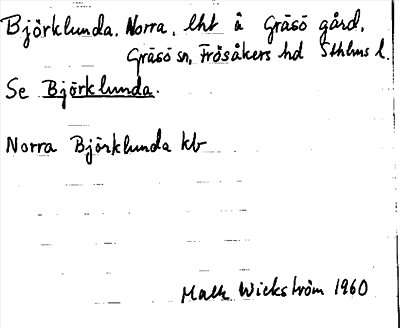 Björklunda. Norra, lht å Gräsö gård,
Gräsö sn, Frösåkers hd Sthlms l.
Se Björklunda.
Norra Björklunda kb
Wickström 1960